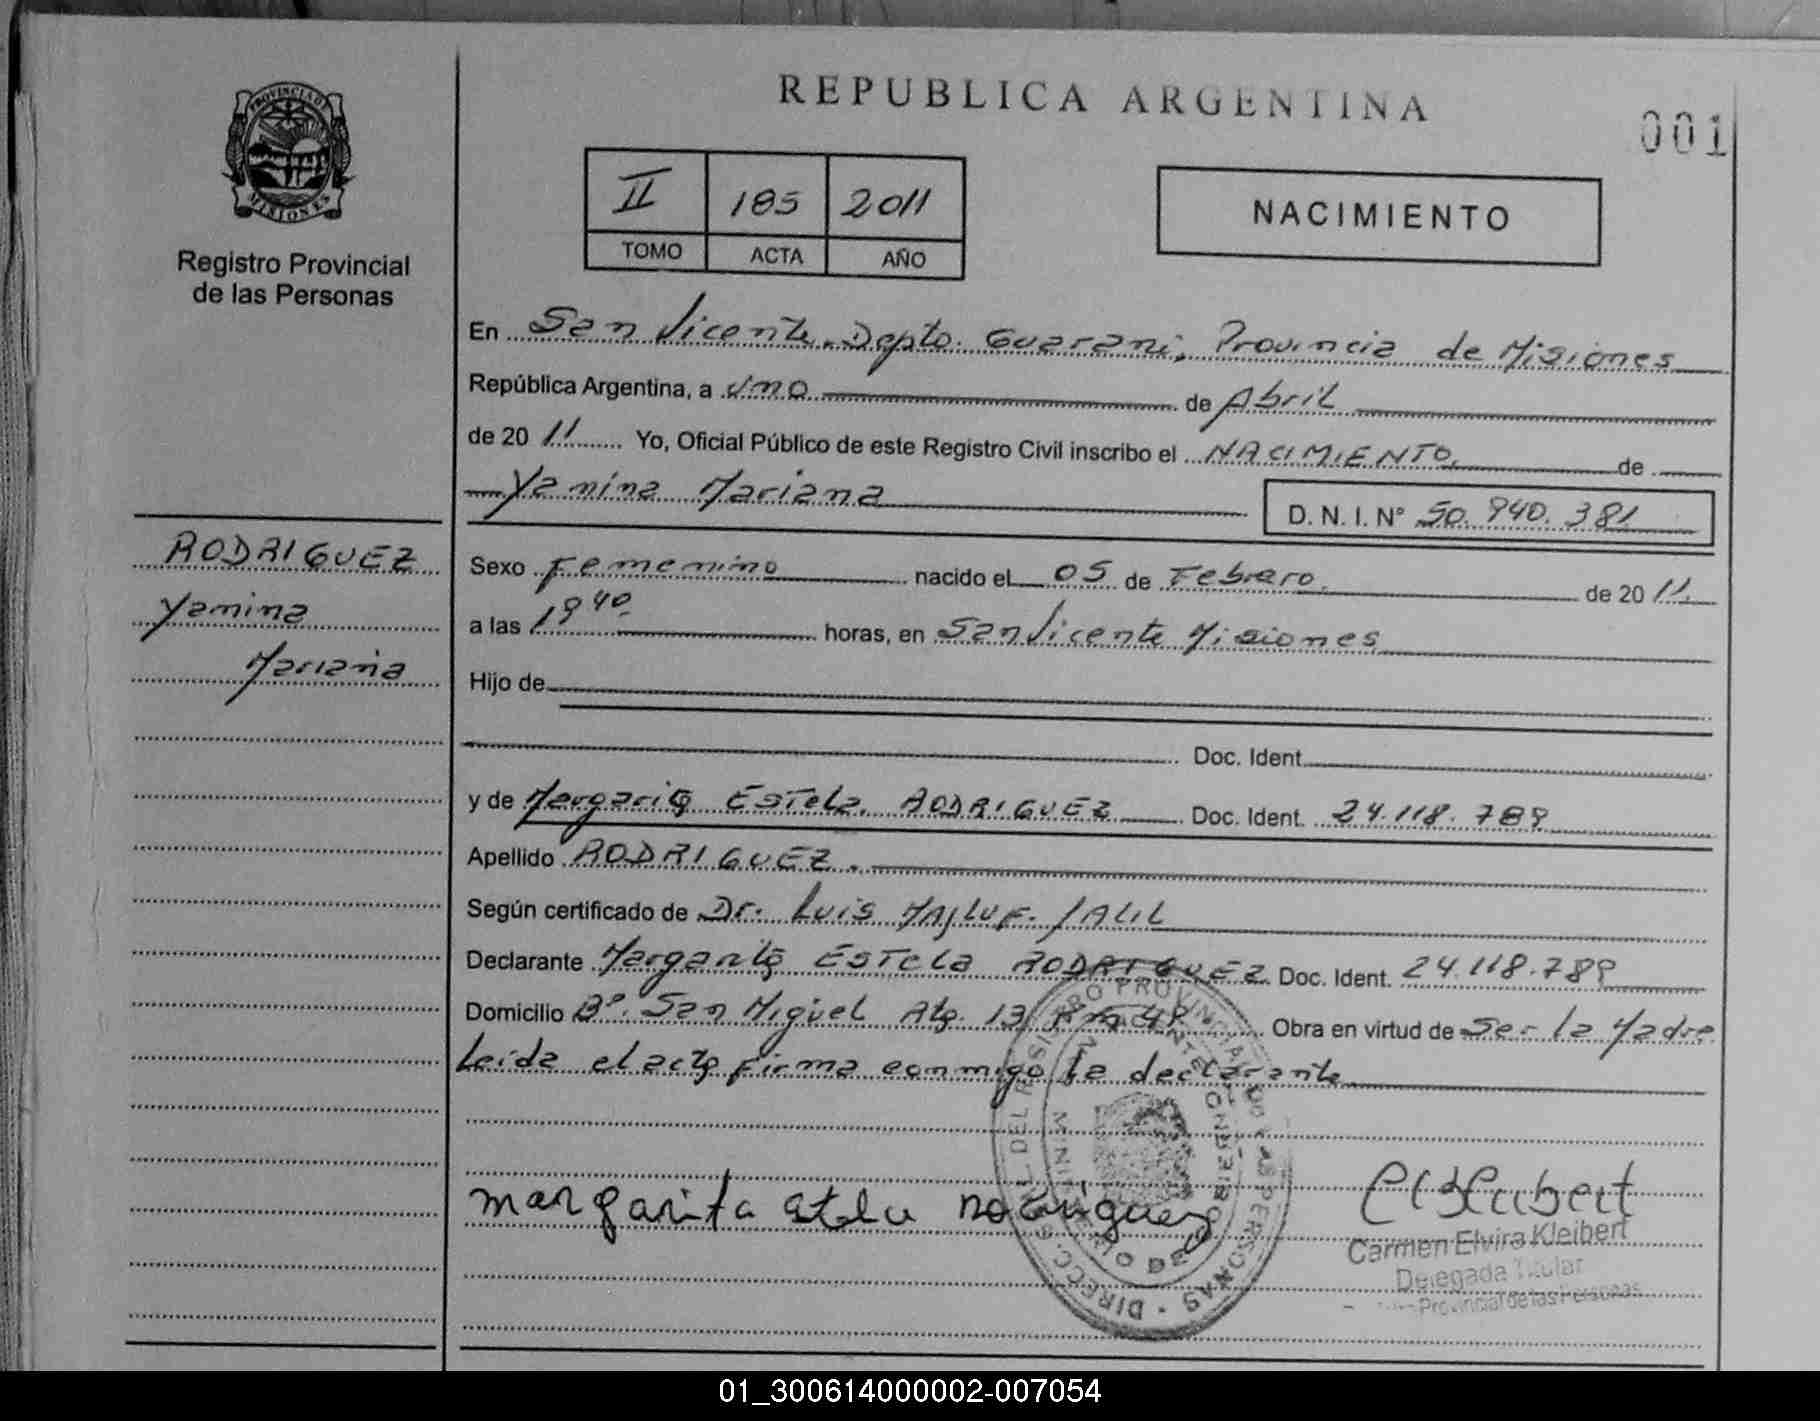 PROVINCIA DE
MISIONES
Registro Provincial
de las Personas
REPUBLICA ARGENTINA
001
II 185 2011
TOMO ACTA AÑO
NACIMIENTO
En San Vicente, Depto. Guarani, Provincia de Misiones
República Argentina, a uno de Abril
de 20 11 Yo, Oficial Público de este Registro Civil inscribo el NACIMIENTO de
Yanina Mariana
D. N. I. N° 50.940.381
RODRIGUEZ
Yanina
Mariana
Sexo Femenino nacido el 05 de Febrero de 20 11
a las 19 40 horas, en San Vicente Misiones
Hijo de
Doc. Ident.
y de Margarita Estela RODRIGUEZ Doc. Ident. 24.118.789
Apellido RODRIGUEZ.
Según certificado de Dr. Luis MAJLUF JALIL
Declarante Margarita Estela RODRIGUEZ Doc. Ident. 24.118.789
Domicilio B°. San Miguel 13 48 Obra en virtud de Ser la Madre
Leida el acta firma conmigo la declarante
margarita estela rodriguez
Carmen Elvira Kleibert
Delegada Titular
Provincial de las Personas
01_300614000002-007054